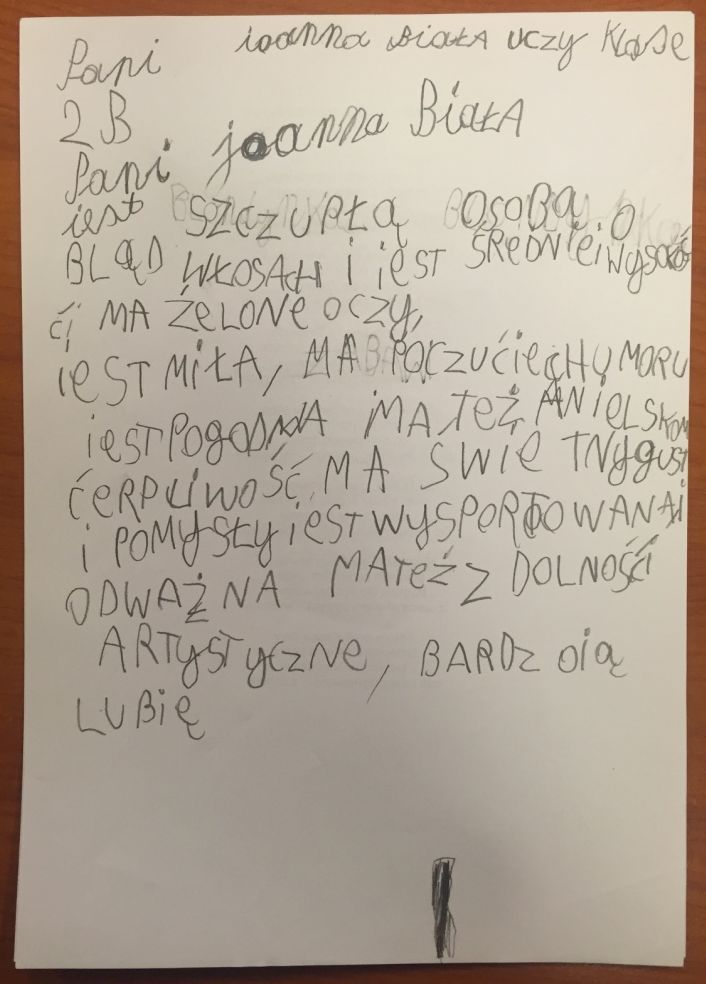 Pani ioanna BiAŁA uczy Klase
2 B
Pani joanna BiAŁA
iest SZCZUPŁĄ OSOBĄ O
BLĄD WŁOSACH i iEST ŚREDNiEi wysokoś
ći MA ŻELONE OCZY,
iEST MiŁA, MA POCZUĆiE CHUMORU
iEST POGODNA MA TEŻ ANiELSKOM
ĆERPLiWOŚĆ MA SWiE TNY GUST
i POMYSŁY iEST WYSPORTOWANA i
ODWAŻNA MA TEŻ Z DOLNOŚĆi
ARTYSTYCZNE, BARDZ Oią
LUBiĘ